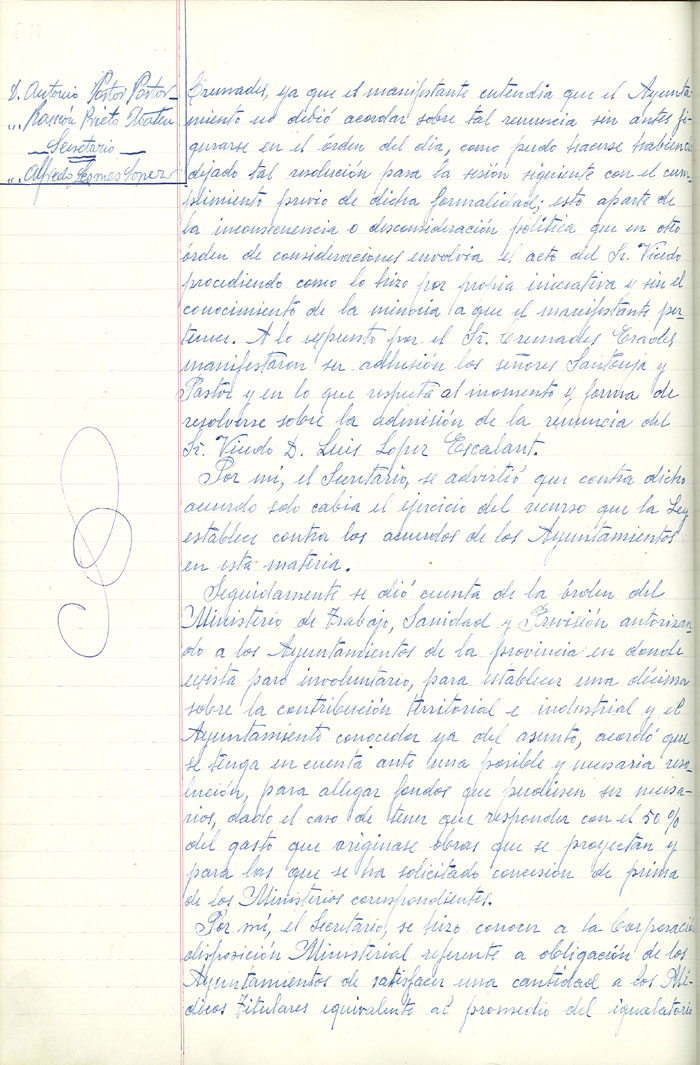 D. Antonio Pastor Pastor
" Ramón Prieto
Secretario
" Alfredo Lopez
Cremades, ya que el manifestante entendia que el Ayunta-
miento no debió acordar sobre tal renuncia sin antes fi-
gurarse en el órden del dia, como pudo hacerse habiendo
dejado tal resolución para la sesión siguiente con el cum-
plimiento previo de dicha formalidad; esto aparte de
la inconsecuencia o desconsideración política que en otro
órden de consideraciones envolvia el acto del Sr. Vicedo
procediendo como lo hizo por propia iniciativa y sin el
conocimiento de la minoria a que el manifestante per-
tenece. A lo expuesto por el Sr. Cremades
manifestaron su adhesión los señores Santonja y
Pastor y en lo que respecta al momento y forma de
resolverse sobre la admisión de la renuncia del
Sr. Vicedo D. Luis Lopez Escalant.
Por mi, el Secretario, se advirtió que contra dicho
acuerdo solo cabia el ejercicio del recurso que la Ley
establece contra los acuerdos de los Ayuntamientos
en esta materia.
Seguidamente se dió cuenta de la órden del
Ministerio de Trabajo, Sanidad y Previsión autorizan-
do a los Ayuntamientos de la provincia en donde
exista paro involuntario, para establecer una décima
sobre la contribución territorial e industrial y el
Ayuntamiento conocedor ya del asunto, acordó que
se tenga en cuenta ante una posible y necesaria reso-
lución, para allegar fondos que pudiesen ser necesa-
rios, dado el caso de tener que responder con el 50 %
del gasto que originase obras que se proyectan y
para las que se ha solicitado concesión de prima
de los Ministerios correspondientes.
Por mi, el Secretario, se hizo conocer a la Corporación
disposición Ministerial referente a obligación de los
Ayuntamientos de satisfacer una cantidad a los Mé-
dicos Titulares equivalente al promedio del igualatorio